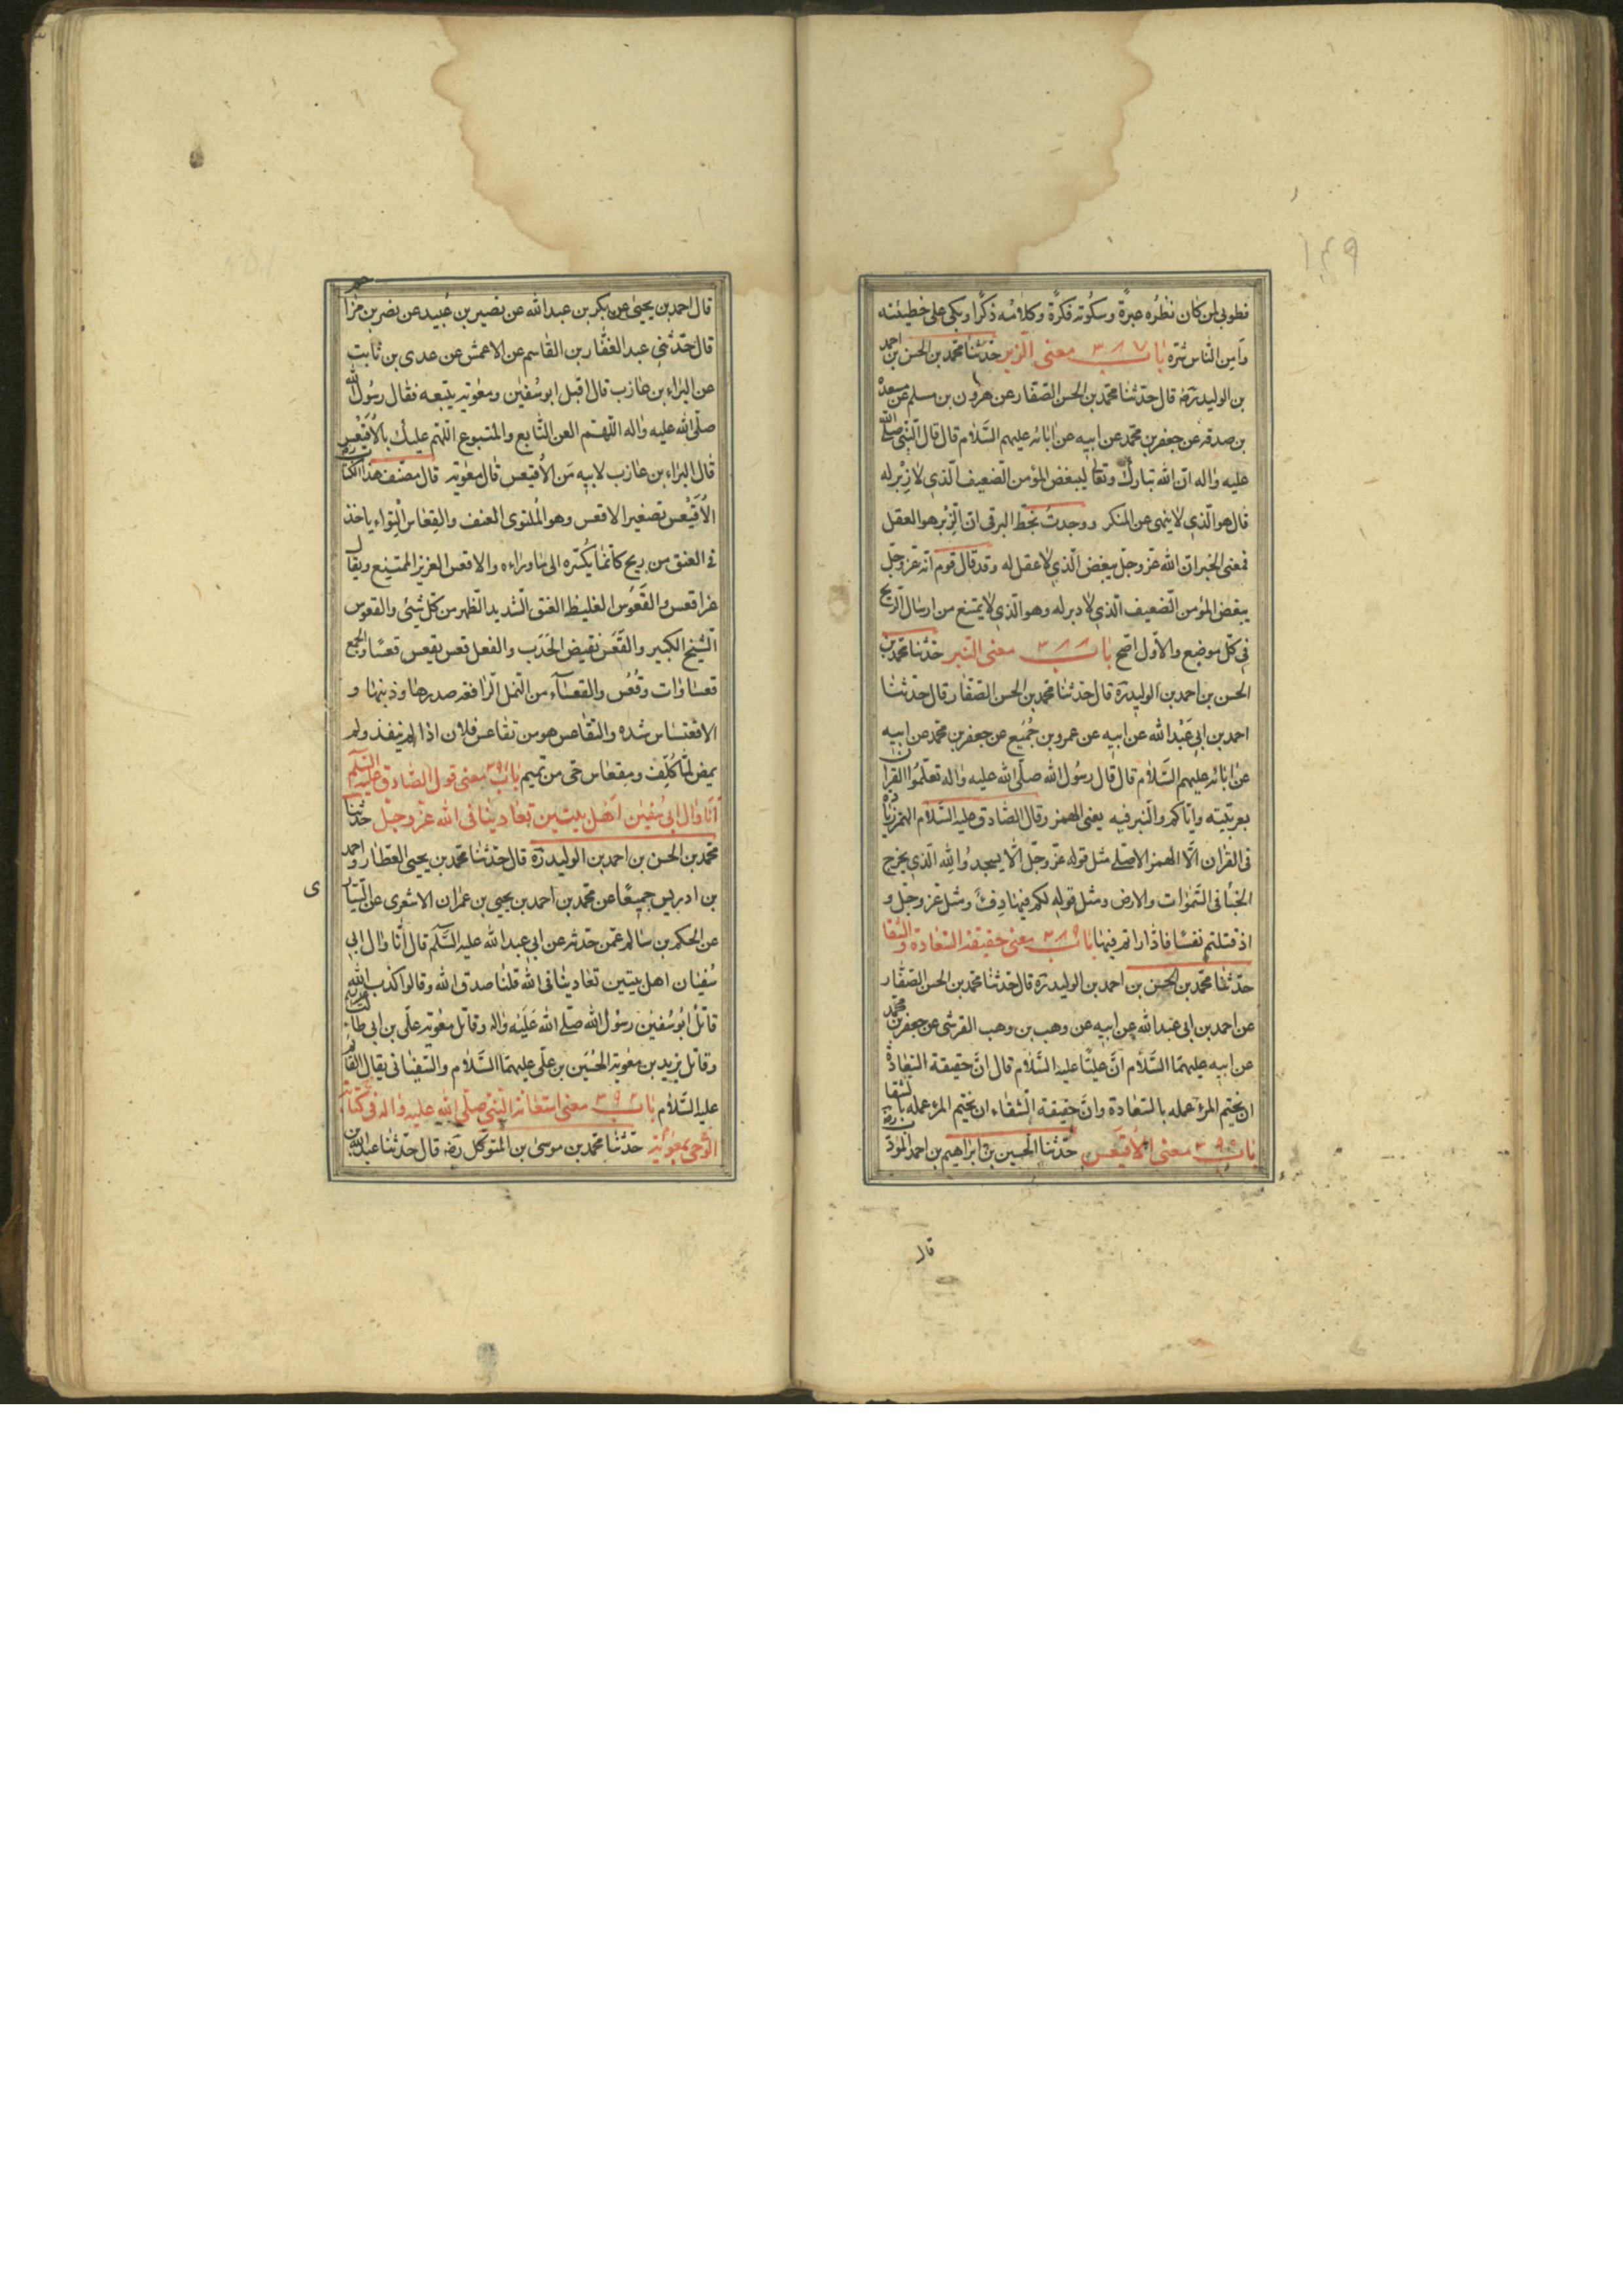 فطوبى لمن كان نظره عبرةً وسكوته فكرةً وكلامه ذكرًا وبكى على خطيئته
وأمن الناس شرّه باب ٣٨٧ معنى الزبر حدّثنا محمّد بن الحسن بن احمد
بن الوليد رضه قال حدّثنا محمّد بن الحسن الصفّار عن هرون بن مسلم عن مسعدة
بن صدقه عن جعفر بن محمّد عن ابيه عن ابائه عليهم السّلام قال قال النّبى صلّى الله
عليه واله انّ الله تبارك وتعالى ليبغض المؤمن الضعيف الّذى لا زبر له
قال هو الّذى لا ينهى عن المنكر ووجدتُ بخطّ البرقى ان الزبر هو العقل
فمعنى الخبر انّ الله عزّ وجلّ يبغض الّذى لا عقل له وقد قال قوم انّه عزّ وجلّ
يبغض المؤمن الضعيف الّذى لا دبر له وهو الّذى لا يمتنع من ارسال الريح
فى كلّ موضع والاوّل اصحّ باب ٣٨٨ معنى النبر حدّثنا محمّد بن
الحسن بن احمد بن الوليد ره قال حدّثنا محمّد بن الحسن الصفّار قال حدّثنا
احمد بن ابى عبد الله عن ابيه عن عمرو بن جُميع عن جعفر بن محمّد عن ابيه
عن ابائه عليهم السّلام قال قال رسول الله صلّى الله عليه واله تعلّموا القران
بعربيّته وايّاكم والنّبر فيه يعنى الهمز وقال الصّادق عليه السّلام الهمز زيادة
فى القران الّا الهمز الاصلى مثل قوله عزّ وجلّ الّا يسجدوا لله الّذى يخرج
الخبأ فى السّموات والارض ومثل قوله لكم فيها دفءٌ ومثل عز وجلّ و
اذ قتلتم نفسًا فادّاراتم فيها باب ٣٨٩ معنى حقيقة السّعادة والشقا
حدّثنا محمّد بن الحسن بن احمد بن الوليد ره قال حدّثنا محمّد بن الحسن الصفّار
عن احمد بن ابى عبد الله عن ابيه عن وهب بن وهب القرشى عن جعفر بن محمّد
عن ابيه عليهما السّلام انّ عليًّا عليه السّلام قال انّ حقيقة السّعادة
ان يختم المرء عمله بالسّعادة وانّ حقيقة الشّقاء ان يختم المرء عمله بالشقا
باب ٣٩٠ معنى الاقيعس حدّثنا الحسين بن ابراهيم بن احمد المؤدّب ره
قال
قال احمد بن يحيى عن بكر بن عبد الله عن نصير بن عُبيد عن نصر بن مزا
قال حدّثنى عبد الغفّار بن القاسم عن الاعمش عن عدى بن ثابت
عن البراء بن عازب قال اقبل ابو سُفين ومعوية يتبعه فقال رسول الله
صلّى الله عليه واله اللّهم العن التّابع والمتبوع اللّهم عليك بالاُقَيْعِس
قال البراء بن عازب لابيه مَن الاُقيعس قال معوية قال مصنّف هذا الكتاب ره
الاُقَيْعس تصغير الاقعس وهو المُلتوى العنف والقعاس التواء ياخذ
فى العنق من ريح كانّما يكسّره الى ما وراءه والاقعس العزيز الممتنع ويقال
عز اقعس والقَعْوَس الغليظ العنق الشديد الظهر من كلّ شيئ والقعوس
الشيخ الكبير والقَعَس نقيض الحَدَب والفعل قعس يقعس قعسًا والجمع
قعساوات وقُعُس والقعساء من النمل الرافعة صدرها وذنبها و
الاقعنساس شده والتقاعس هو من تقاعس فلان اذا لم ينفذ ولم
يمض لمّا كُلّف ومقعاس حى من تميم باب ٣٩١ معنى قول الصّادق عليه السّلم
انّا وال ابى سُفين اهل بيتين تعادينا فى الله عزّ وجلّ حدّثنا
محمّد بن الحسن بن احمد بن الوليد ره قال حدّثنا محمّد بن يحيى العطّار واحمد
بن ادريس جميعًا عن محمّد بن احمد بن يحيى بن عمران الاشعرى عن السّيّار
ى
عن الحكم بن سالم عمّن حدّثه عن ابى عبد الله عليه السَّلم قال انّا وال ابى
سُفيان اهل بيتين تعادينا فى الله قلنا صدق الله وقالوا كذب الله
قاتل ابو سُفين رسول الله صلّى الله عَلَيْه واله وقاتل معوية علّى بن ابى طالب
وقاتل يزيد بن معوية الحُسَين بن علّى عليهما السَّلام والسّفيانى يقاتل القائم
عليه السّلام باب ٣٩٢ معنى استعانة النبّى صلّى الله عليه واله فى كتابة
الوَحى بمعوية حدّثنا محمّد بن موسى بن المتوكّل رضه قال حدّثنا عبد الله بن